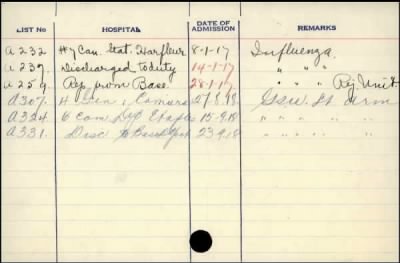 LIST NO HOSPITAL DATE OF ADMISSION REMARKS
A232 #7 Can. Stat. Harfleur 8-1-17 Influenza
A237 Discharged To duty 14-1-17 " " "
A259 Rep. from Base. 28-1-17 " " " Rej. Unit
A307 4 Gen, Camiers 27.8.18 Gsw. Lt arm
A324 6 Con Dep Etaples 15-9.18 " " "
A331. Disc to Base 23.9.18 " " "